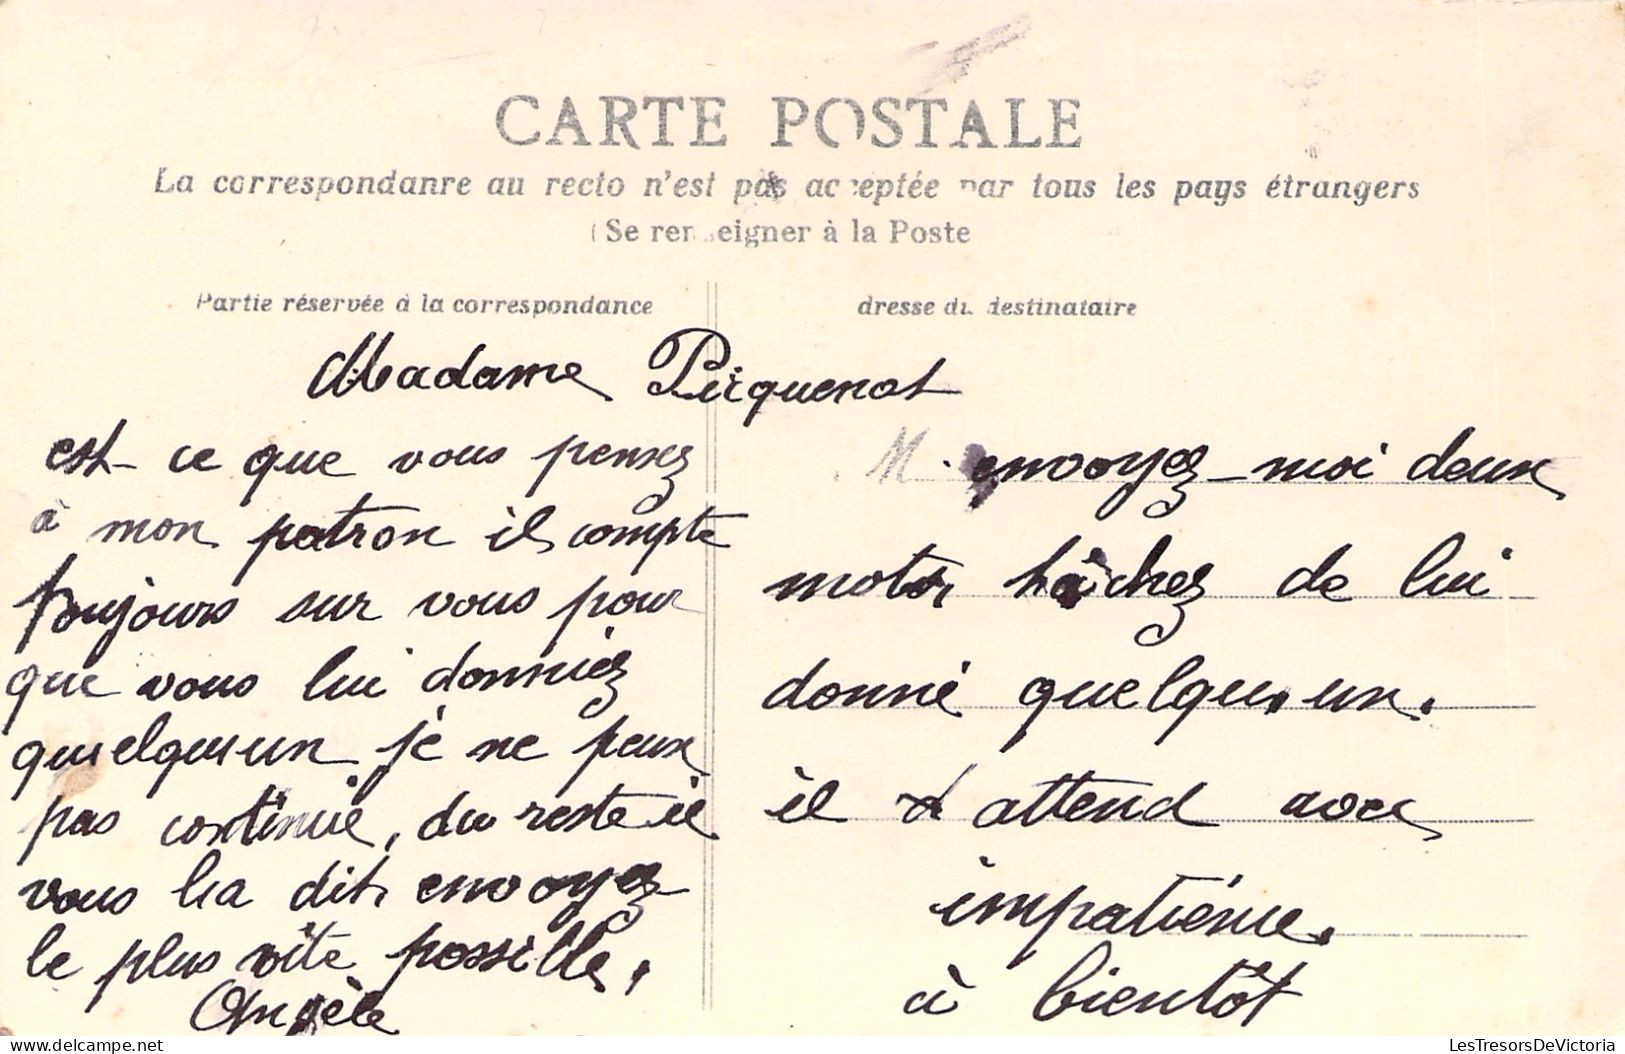 CARTE POSTALE
La correspondanre au recto n'est pas acceptée par tous les pays étrangers
(Se renseigner à la Poste
Partie réservée à la correspondance
dresse du destinataire
Madame Picquenot
est-ce que vous pensez
à mon patron il compte
toujours sur vous pour
que vous lui donniez
quelqu'un je ne peux
pas continué, du reste il
vous la dit, envoyez
le plus vite possible,
Angèle
M. envoyez-moi deux
mots tâchez de lui
donné quelqu'un.
il attend avec
impatience.
à bientôt
LesTresorsDeVictoria